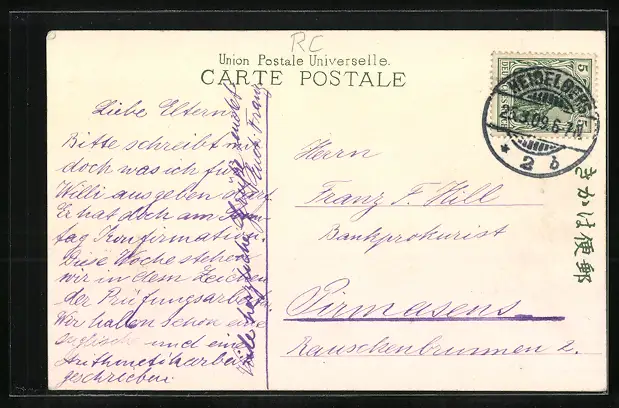 RC
Union Postale Universelle.
CARTE POSTALE
5
HEIDELBERG
23.3.09.6-7N
* 2 b
Liebe Eltern!
Bitte schreibt mir
doch was ich für
Willi ausgeben darf.
Er hat doch am Sonn-
tag Konfirmation.
Diese Woche stehen
wir in dem Zeichen
der Prüfungsarbeiten.
Wir haben schon eine
englische und eine
Arithmetikarbeit
geschrieben.
Viele herzliche Grüße sendet
Euch Franz
Herrn
Franz F. Hill
Bankprokurist
Pirmasens
Rauschenbrunnen 2.
きかは便郵